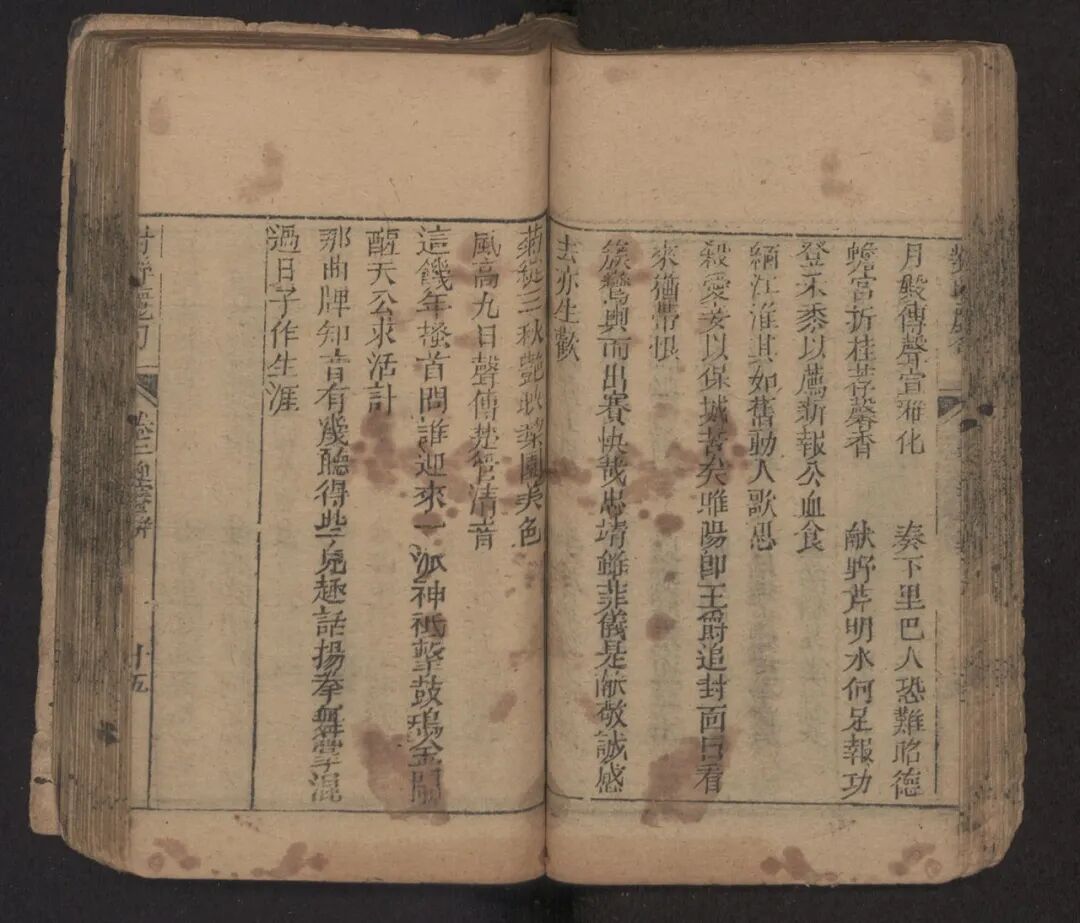 月殿傳聲宣雅化　奏下里巴人恐難昭德
蟾宮折桂荐馨香　献野芹明水何足報功
登禾黍以薦新報公血食
緬江淮其如舊動人歌思
殺愛妾以保城苦矣雎陽卽王爵追封面目看
來猶帶恨
簇鸞輿而出賽快哉忠靖雖菲儀是献敬誠感
去亦生歡
菊綻三秋艷映梨園美色
風高九日聲傳楚管清音
這饑年搔首問誰迎來一派神祗擊鼓鳴金閙
醒天公求活計
那曲牌知音有幾聽得些兒趣話揚拳舞掌混
過日子作生涯
卷二
十五